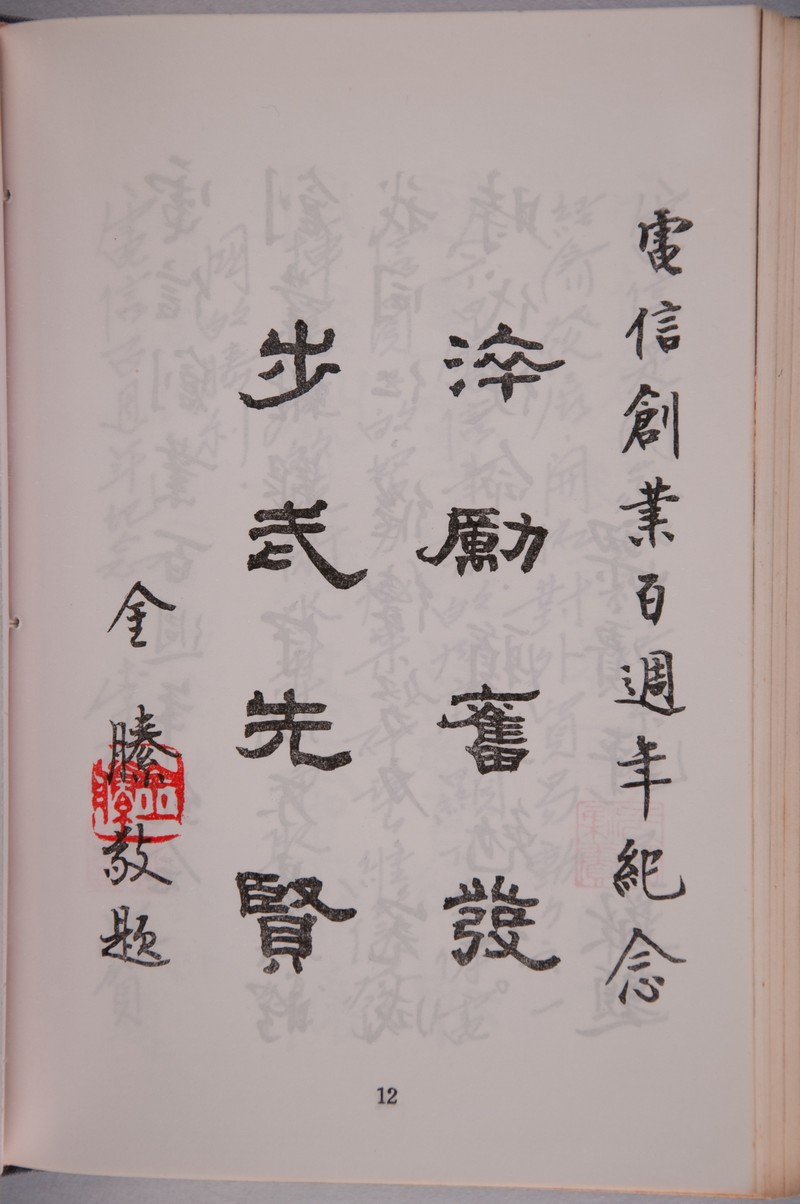 電信創業百週年紀念
淬勵奮發
步武先賢
金滕敬題
12